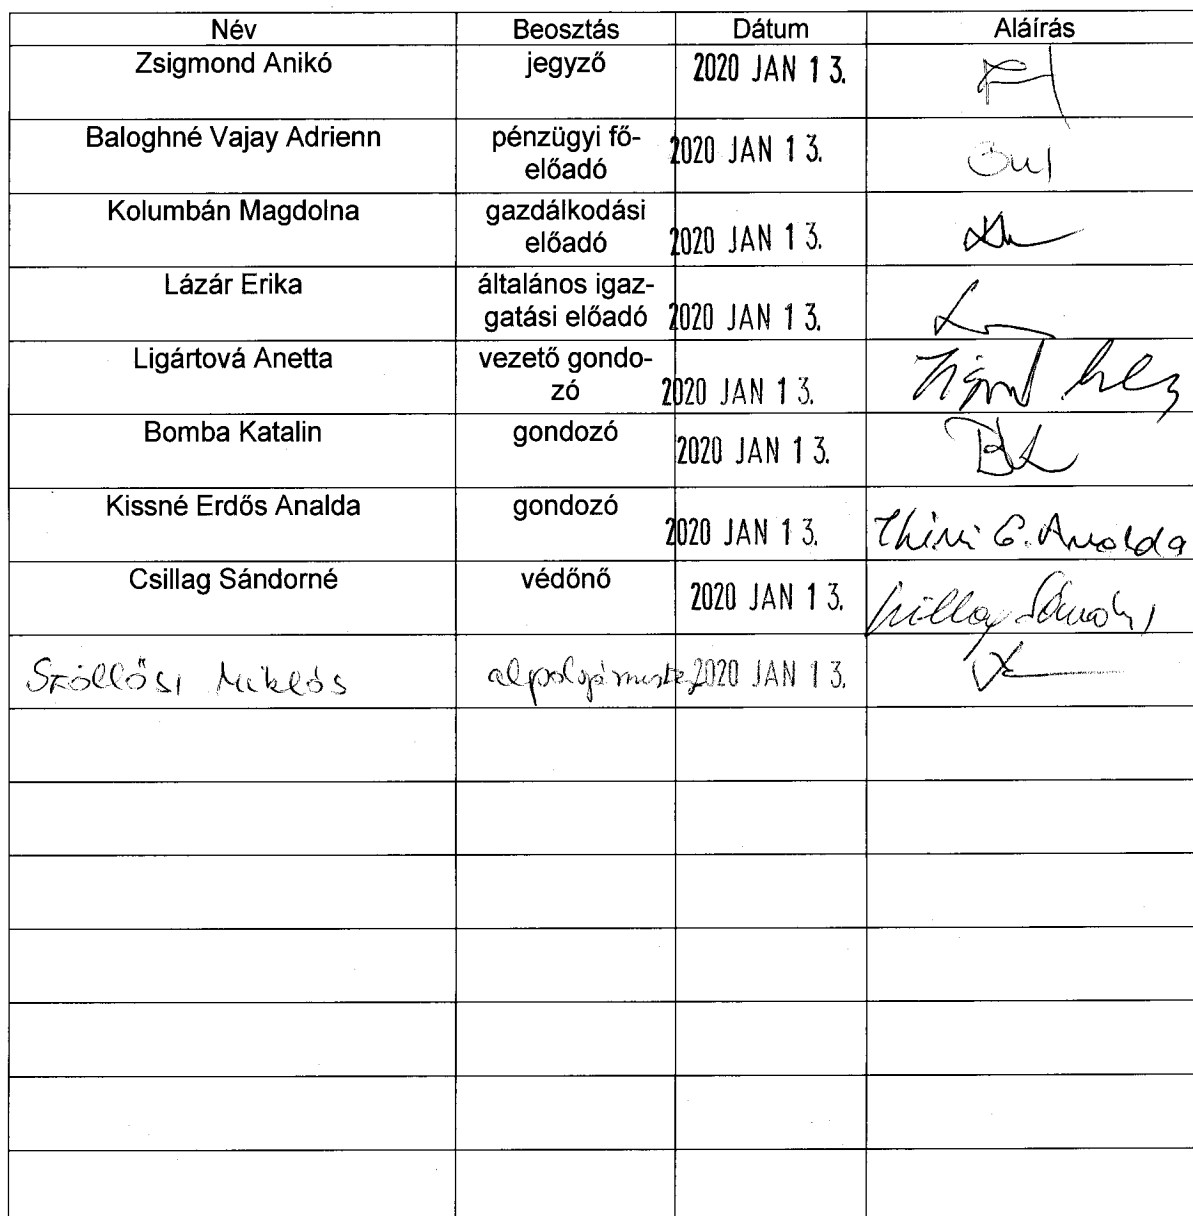 Név Beosztás Dátum Aláírás
Zsigmond Anikó jegyző 2020 JAN 13.
Baloghné Vajay Adrienn pénzügyi fő-
előadó 2020 JAN 13.
Kolumbán Magdolna gazdálkodási
előadó 2020 JAN 13.
Lázár Erika általános igaz-
gatási előadó 2020 JAN 13.
Ligártová Anetta vezető gondo-
zó 2020 JAN 13.
Bomba Katalin gondozó 2020 JAN 13. BK
Kissné Erdős Analda gondozó 2020 JAN 13.
Csillag Sándorné védőnő 2020 JAN 13.
Szöllősi Miklós alpolgármester 2020 JAN 13.